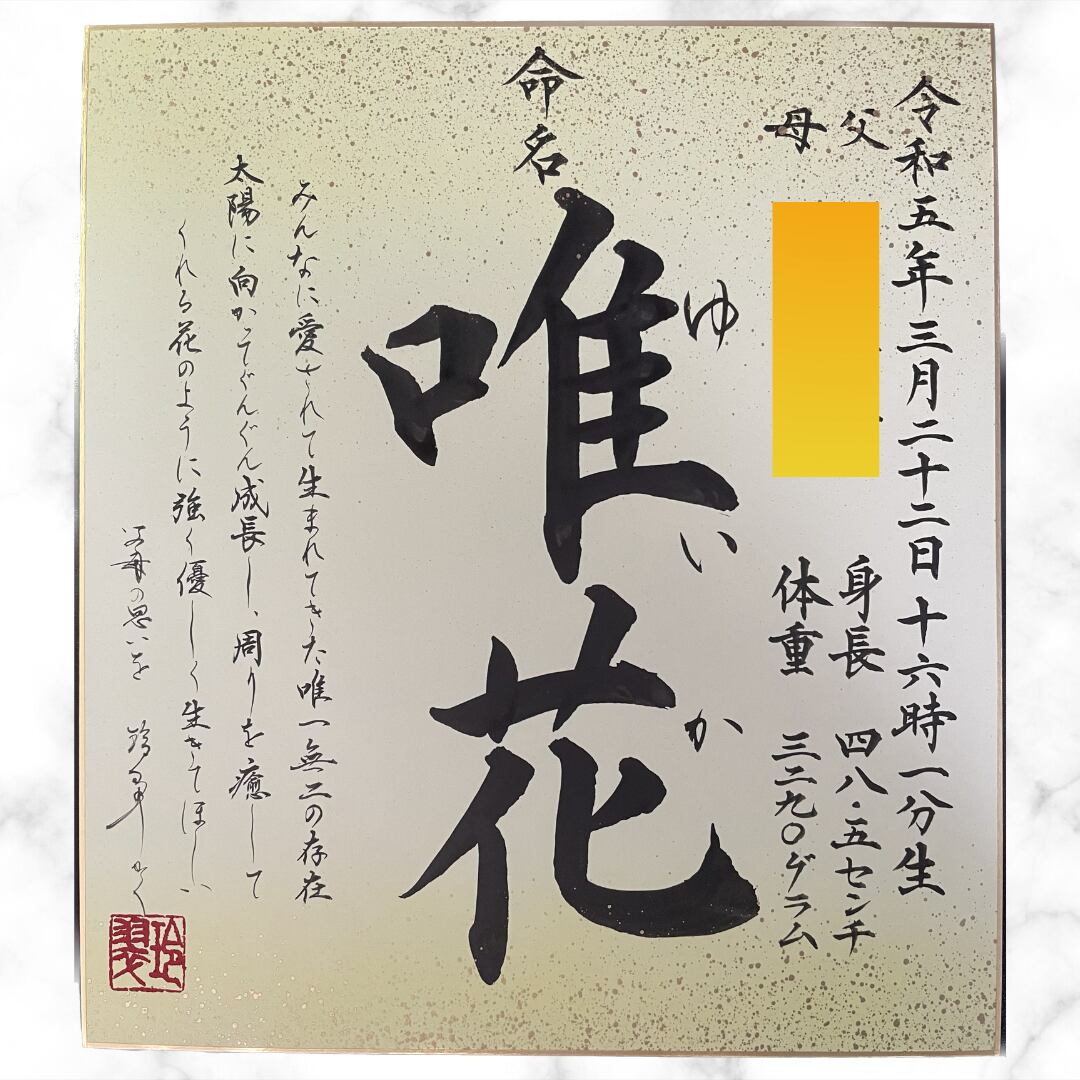 令和五年三月二十二日 十六時一分生
父
母
身長 四八・五センチ
体重 三二九〇グラム
命名
唯花
ゆいか
みんなに愛されて生まれてきた唯一無二の存在
太陽に向かってぐんぐん成長し、周りを癒して
くれる花のように強く優しく生きてほしい
父母の思いを
玲翠